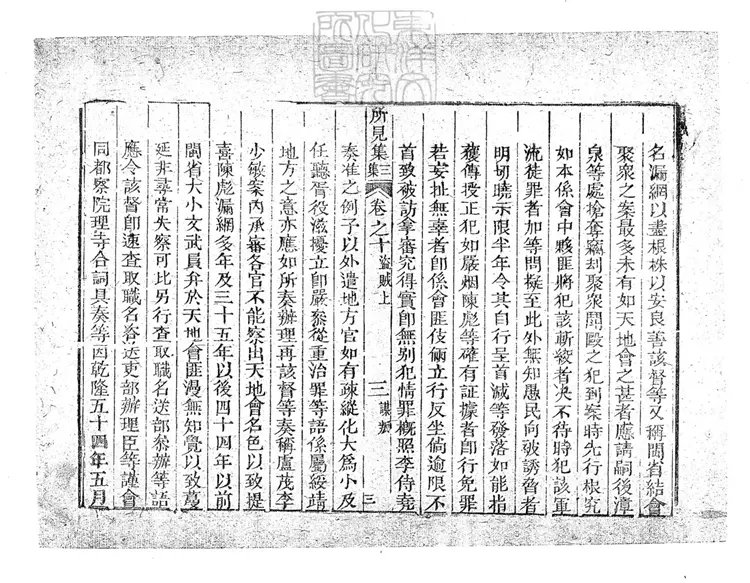 名漏網以盡根株以安良善該督等又稱閩省結會
聚衆之案最多未有如天地會之甚者應請嗣後漳
泉等處搶奪竊刦聚衆鬪毆之犯到案時先行根究
如本係會中夥匪將犯該斬絞者決不待時犯該軍
流徒罪者加等問擬至此外無知愚民向被誘脅者
明切曉示限半年令其自行呈首減等發落如能指
獲傳授正犯如嚴烟陳彪等確有証據者即行免罪
若妄扯無辜者即係會匪伎倆立行反坐倘逾限不
首致被訪拿審究得實即無别犯情罪概照李侍堯
所見集三集 卷之十 盜賊上 三 謀叛 三
奏准之例予以外遣地方官如有疎縱化大爲小及
任聽胥役滋擾立即嚴叅從重治罪等語係屬綏靖
地方之意亦應如所奏辦理再該督等奏稱盧茂李
少敏案内承審各官不能察出天地會名色以致提
喜陳彪漏網多年及三十五年以後四十四年以前
閩省大小文武員弁於天地會匪漫無知覺以致蔓
延非尋常失察可比另行查取職名送部叅辦等語
應令該督即速查取職名咨送吏部辦理臣等謹會
同都察院理寺合詞具奏等因乾隆五十四年五月